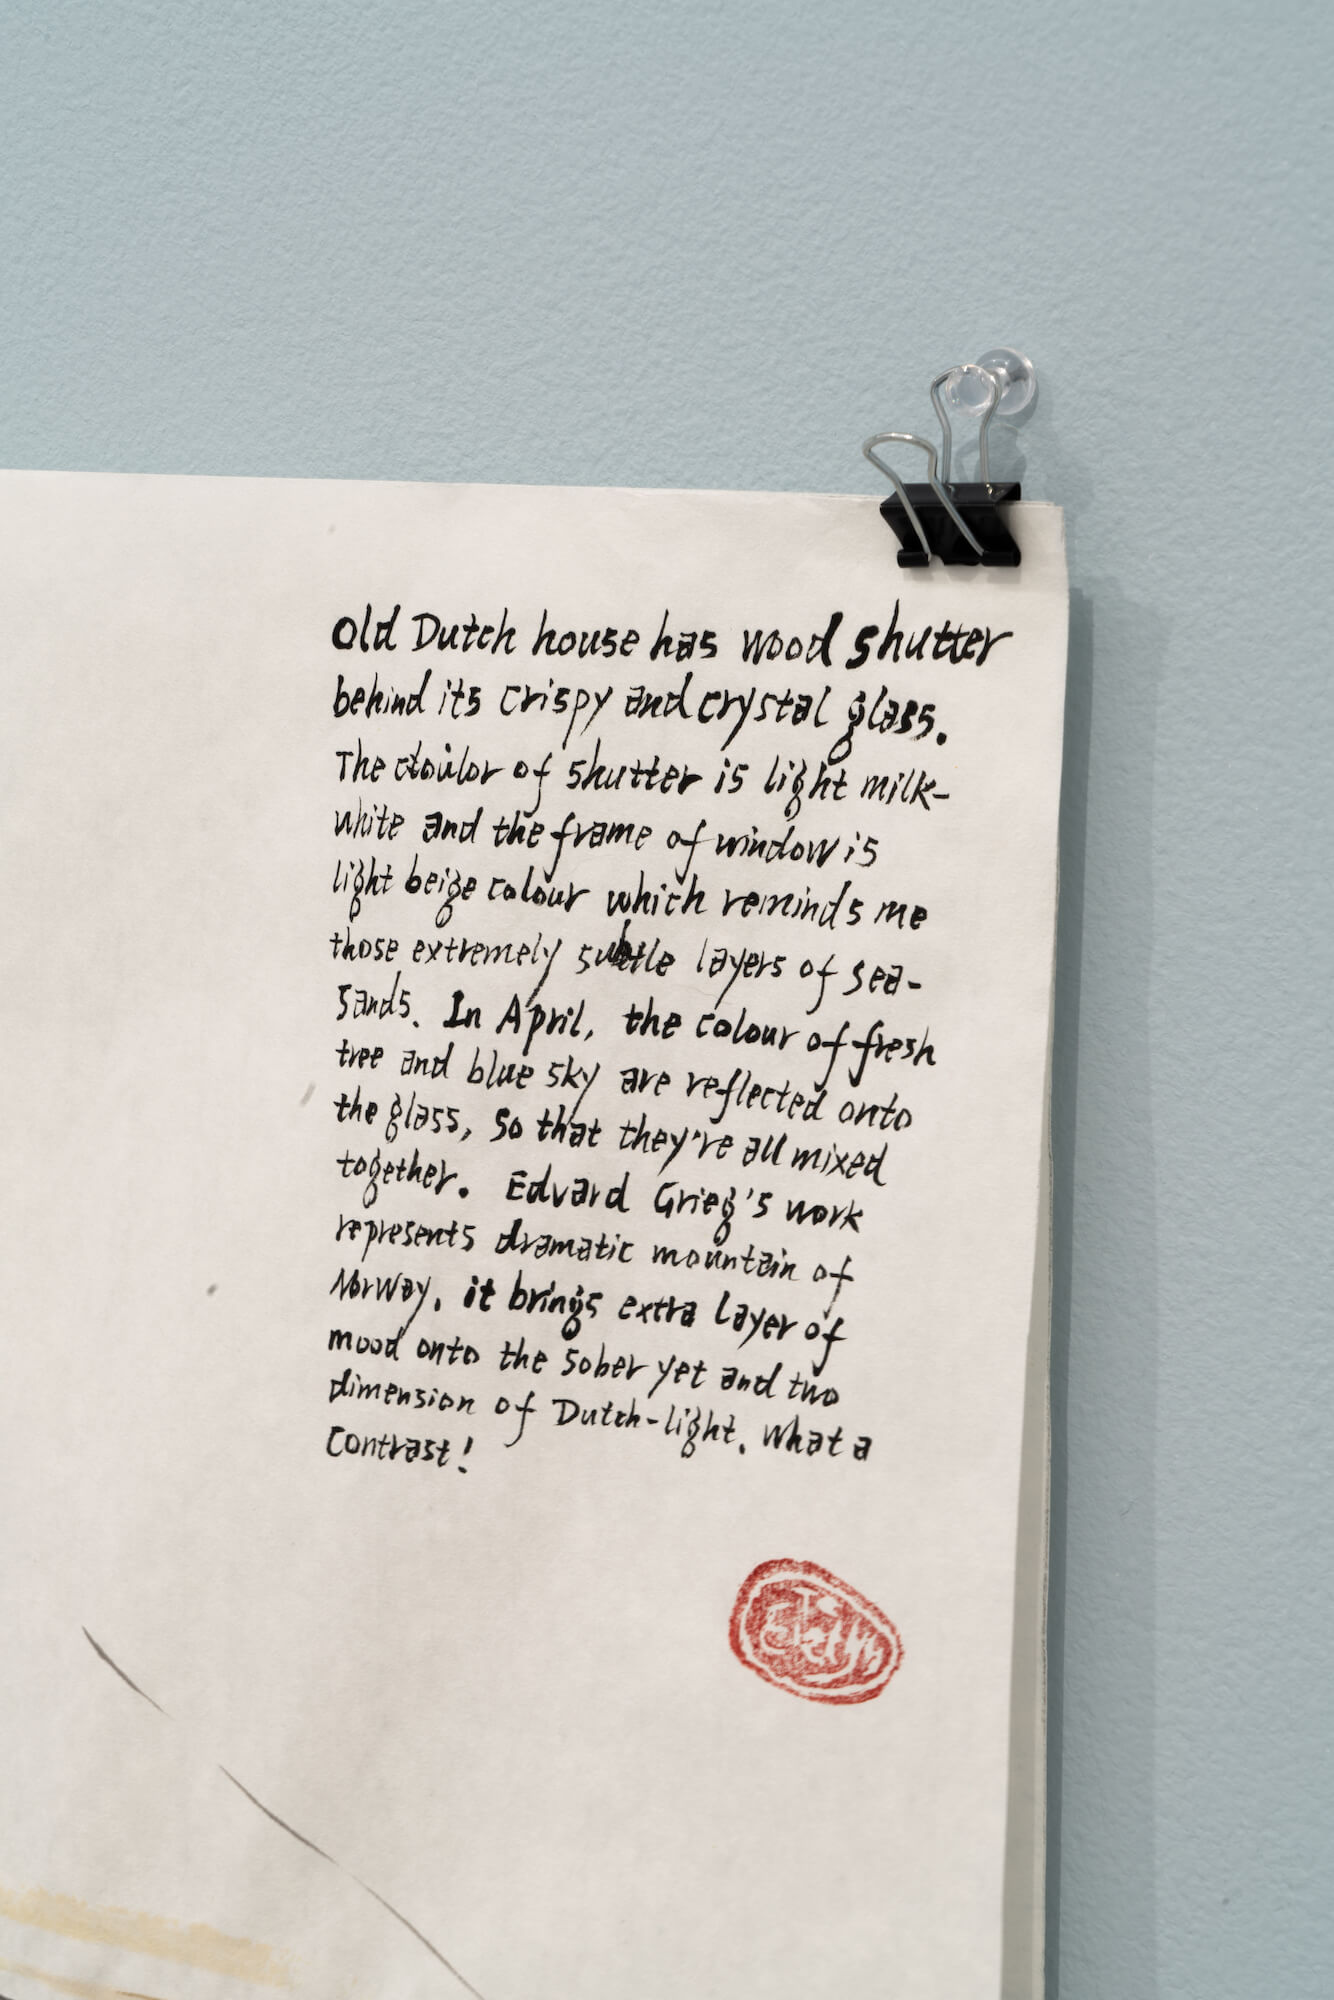 Old Dutch house has wood shutter
behind its crispy and crystal glass.
The of shutter is light milk-
white and the frame of window is
light beige colour which reminds me
those extremely subtle layers of sea-
sands. In April, the colour of fresh
tree and blue sky are reflected onto
the glass, so that they're all mixed
together. Edvard Grieg's work
represents dramatic mountain of
Norway. it brings extra layer of
mood onto the sober yet and two
dimension of Dutch-light. What a
Contrast!